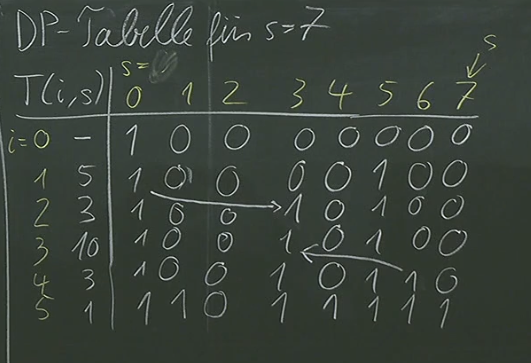 DP-Tabelle für s=7
s= s
T(i,s) 0 1 2 3 4 5 6 7
i=0 - 1 0 0 0 0 0 0 0
1 5 1 0 0 0 0 1 0 0
2 3 1 0 0 1 0 1 0 0
3 10 1 0 0 1 0 1 0 0
4 3 1 0 0 1 0 1 1 0
5 1 1 1 0 1 1 1 1 1